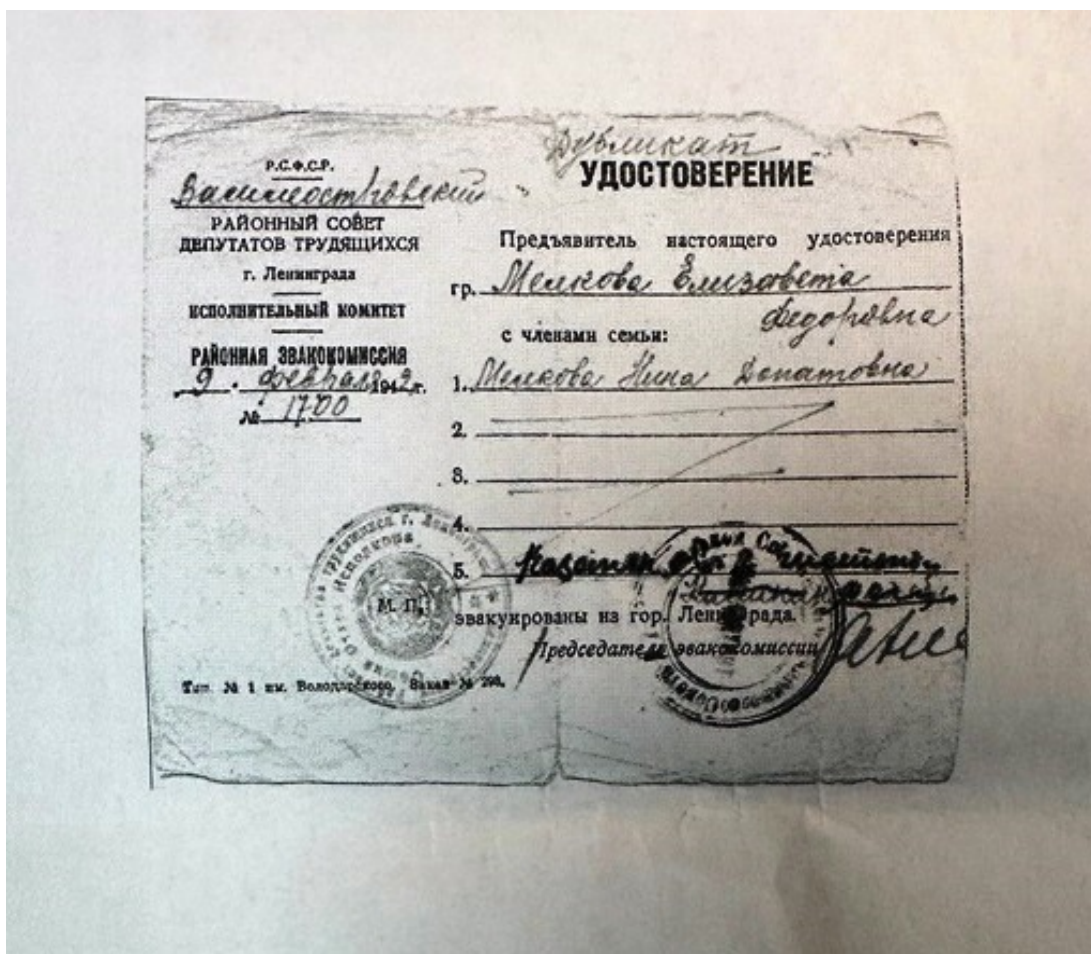 Дубликат
УДОСТОВЕРЕНИЕ
Р.С.Ф.С.Р.
Василеостровский
РАЙОННЫЙ СОВЕТ
ДЕПУТАТОВ ТРУДЯЩИХСЯ
г. Ленинграда
ИСПОЛНИТЕЛЬНЫЙ КОМИТЕТ
РАЙОННАЯ ЭВАКОКОМИССИЯ
9. февраля 1942 г.
№ 1700
Предъявитель настоящего удостоверения
гр. Мелкова Елизавета
Федоровна
с членами семьи:
1. Мелкова Нина Донатовна
2.
3.
4.
5.
эвакуированы из гор. Ленинграда.
Председатель эвакокомиссии
М. П.
Тип. № 1 им. Володарского. Заказ № 293.